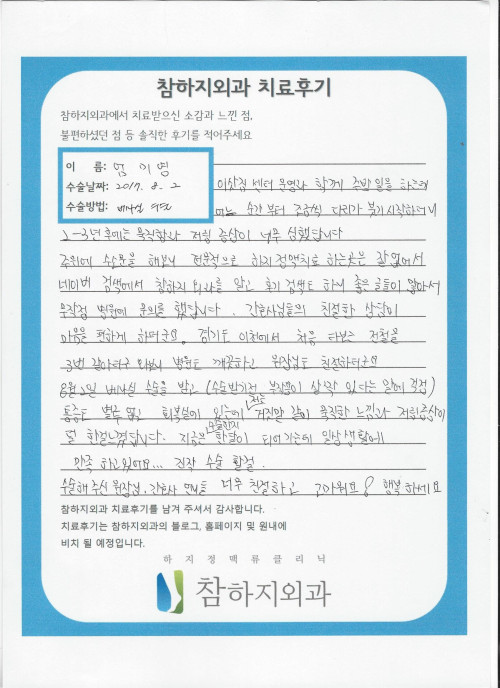 참하지외과 치료후기
참하지외과에서 치료받으신 소감과 느낀 점,
불편하셨던 점 등 솔직한 후기를 적어주세요
이 름: 엄 기 영
수술날짜: 2017. 8. 2
수술방법: 베나실
이삿짐 센터 운영과 함께 주방일을 하는데
어느 순간부터 조금씩 다리가 붓기 시작하더니
2~3년 후에는 묵직함과 저림 증상이 너무 심했답니다
주위에 수소문을 해보니 전문적으로 하지정맥치료 하는곳은 잘 없어서
네이버 검색에서 참하지외과를 알고 후기 검색도 하니 좋은 글들이 많아서
무작정 병원에 문의를 했답니다. 간호사님들의 친절한 상담이
마음을 편하게 하더군요. 경기도 이천에서 처음 타보는 전철을
3번 갈아타고 와보니 병원도 깨끗하고 원장님도 친절하더군요
8월 2일 베나실 수술을 받고 (수술받기전 부작용이 살짝 있다는 말에 걱정)
통증도 별로 없고 회복실에 있는데 저는 거짓말 같이 묵직한 느낌과 저림증상이
덜 한걸 느꼈답니다. 지금은 수술한지 한달이 되어가는데 일상생활에
만족 하고있어요... 진작 수술 할걸.
수술해 주신 원장님, 간호사 언니들 너무 친절하고 고마워요? 행복하세요
참하지외과 치료후기를 남겨 주셔서 감사합니다.
치료후기는 참하지외과의 블로그, 홈페이지 및 원내에
비치 될 예정입니다.
하지정맥류클리닉
참하지외과